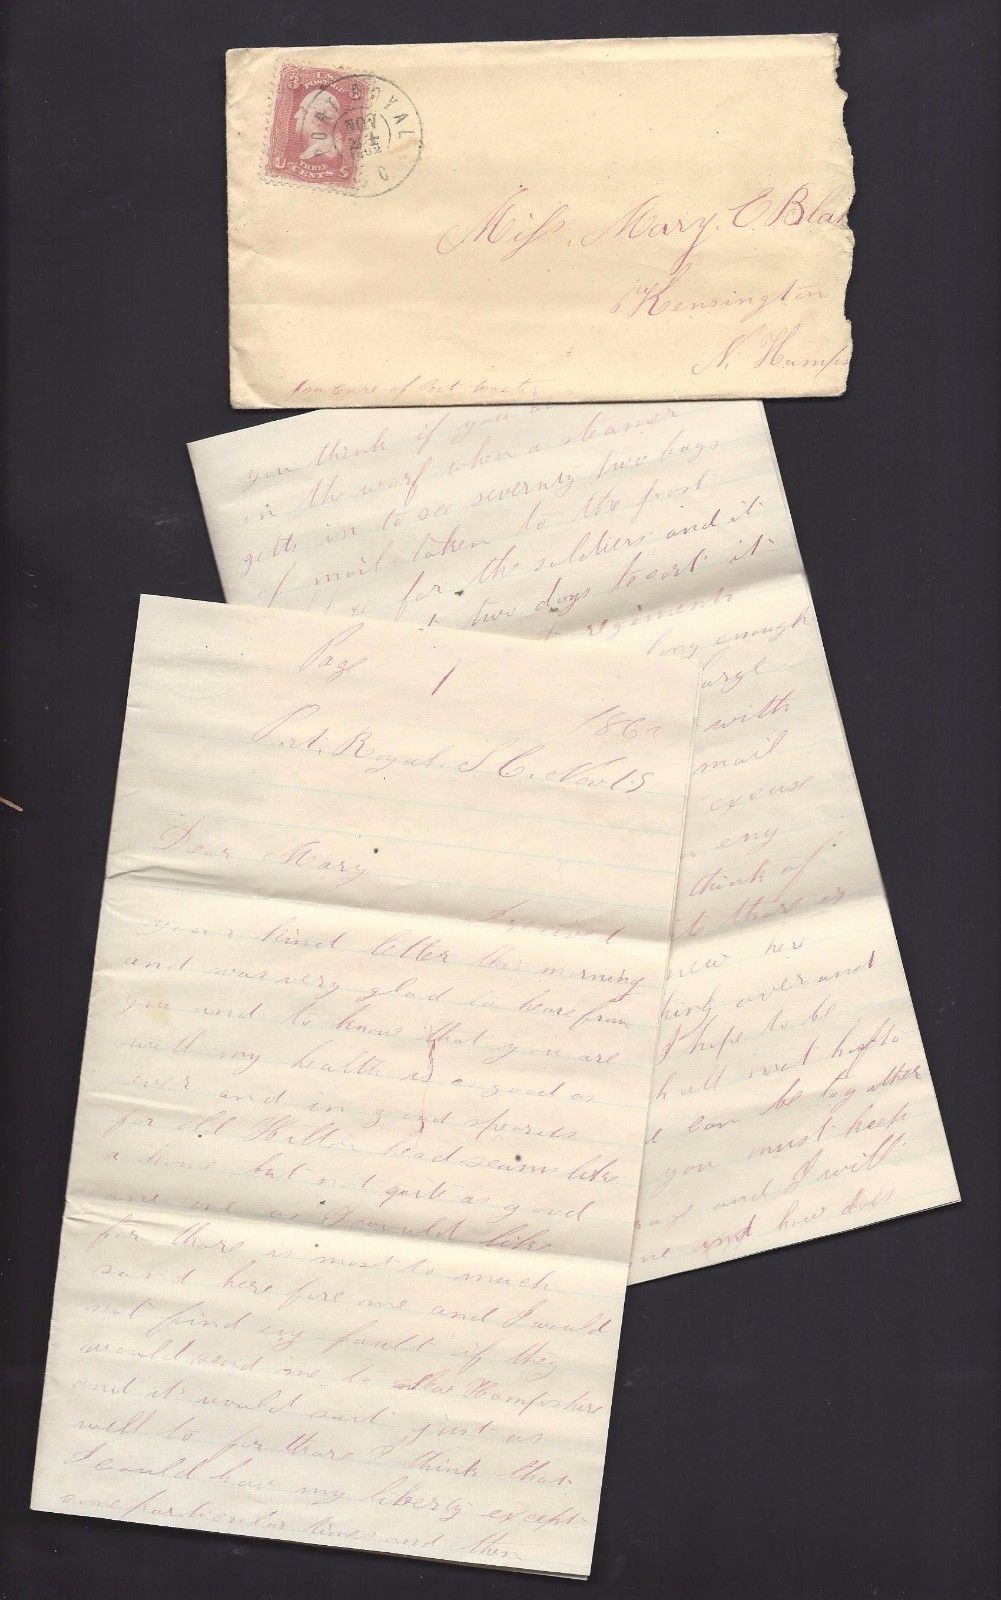 3 U.S. 3
POSTAGE
U THREE S
CENTS
PORT ROYAL
NOV
1862
S C
Miss. Mary. E. Bla
Kensington
N. Hamps
In care of Post
you think if you
in the worf when a steamer
getts in to see seventy two bags
of mail taken to the post
for the soldiers and it
two days to sort it
regiments
long enough
large
with
mail
excuse
eny
think of
there is
new here
over and
I hope to be
all not have to
can be together
you must keep
and I will
me and how does
Page 1
1862
Port. Royal. S C. Nov 15
Dear Mary
I recived
your kind letter this morning
and was very glad to heare from
you and to know that you are
well my health is as good as
ever and in good spearits
for old Hilton head seams like
a home but not quite as good
one as I would like
for thare is most to much
sand here fore me and I would
not find eny fault if they
would send me to New Hampshire
and it would suit just as
well to for thare I think that
I could have my liberty except
some particular times and then